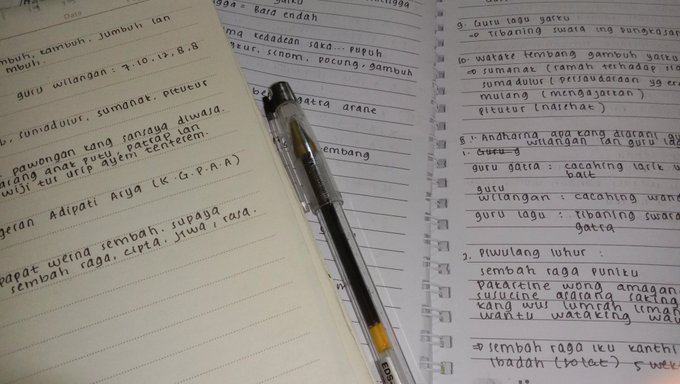 Date
mbuh, kambuh, jumbuh lan
mbuh.
guru wilangan : 7, 10, 12, 8, 8
sumadulur, sumanak, pitutur
pawongan kang sansaya diwasa.
arang anak putu, patrap lan
wiji tur urip ayem tenterem.
geran Adipati Arya (K.G.P.A.A)
papat werna sembah. supaya
sembah raga, cipta, jiwa, rasa.
ngga = Bara endah
ma kedadean saka... pupuh
gkur, sinom, pocung, gambuh
gatra arane
embang
EDS-
9. Guru lagu yaiku
⇒ tibaning swara ing pungkasan
10. watake tembang gambuh yaiku
⇒ sumanak (ramah terhadap
sumadulur (persaudaraan yg
mulang (mengajarkan)
pitutur (nasehat)
1. Andharna apa kang diarani
wilangan lan guru
guru gatra : cacahing larik
bait
guru
wilangan : cacahing
guru lagu : tibaning swara
gatra
2. Piwulang luhur :
sembah raga puniku
pakartine wong amagang
susucine asarana saking
kang wus lumrah
wantu wataking
⇒ sembah raga iku kanthi
ibadah (solat) 5